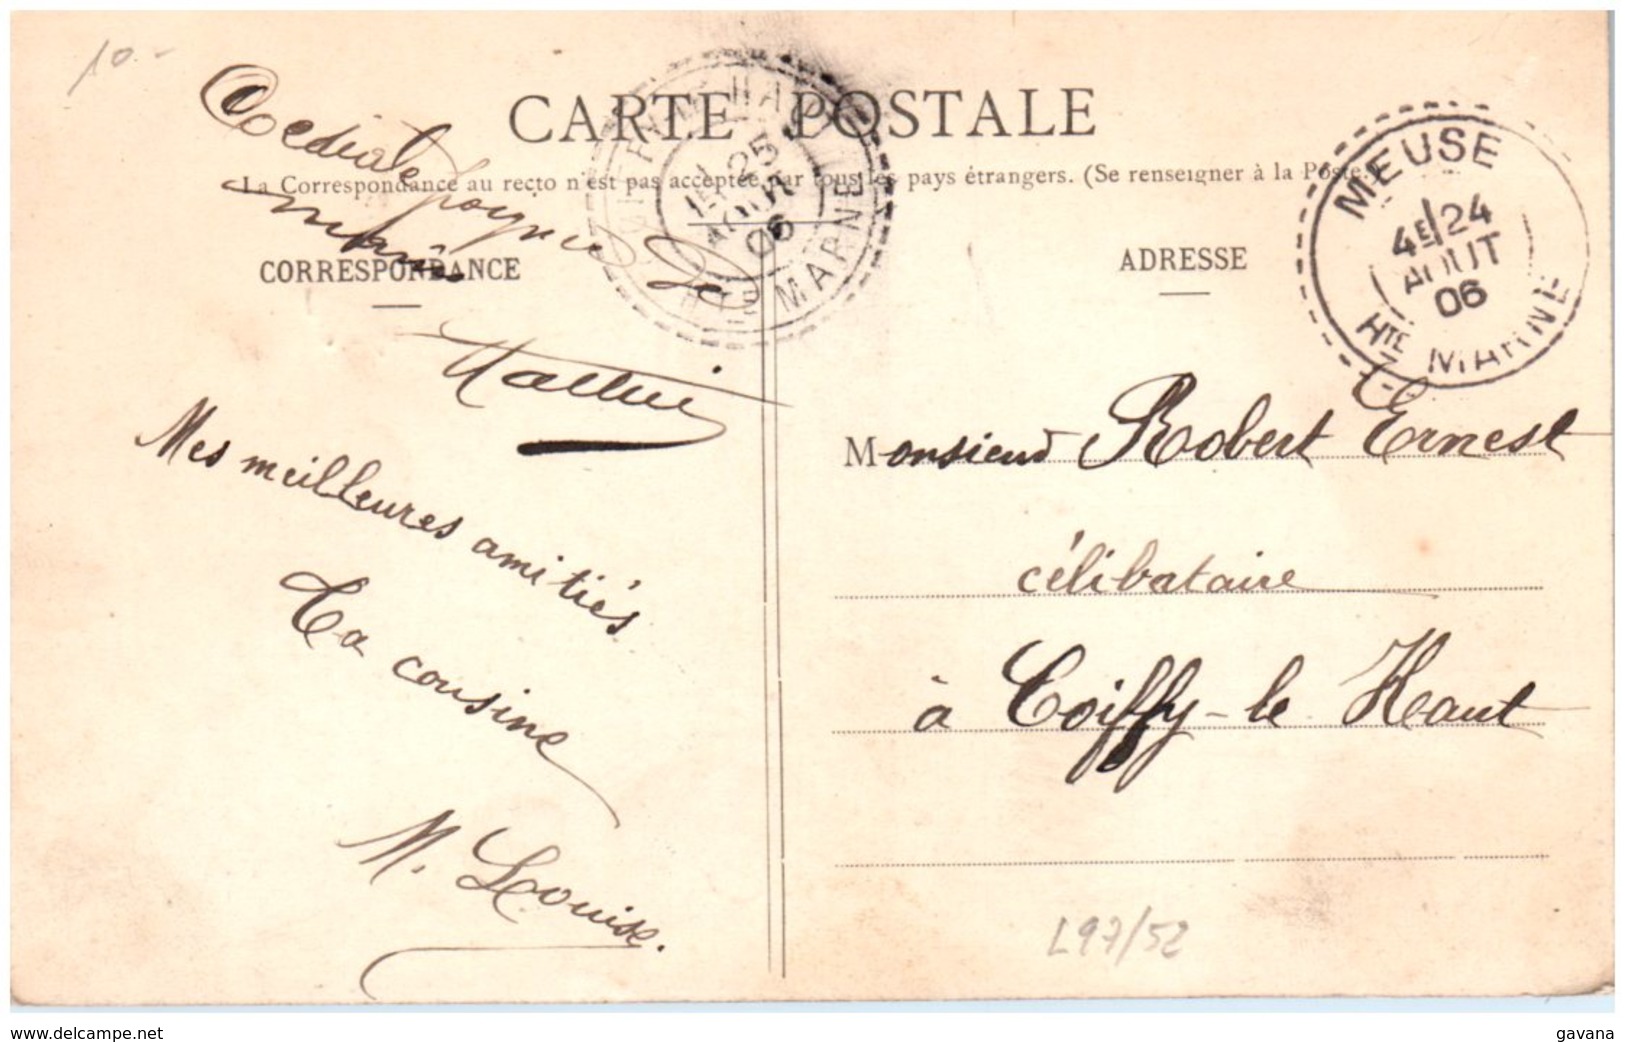 10.-
CARTE POSTALE
La Correspondance au recto n'est pas acceptée par tous les pays étrangers. (Se renseigner à la Poste.)
CORRESPONDANCE
ADRESSE
Cordiale poignée de
main
Mes meilleures amitiés
Ta cousine
M. Louise.
1E 25
AOUT
06
HTE MARNE
MEUSE
4E 24
AOUT
06
HTE MARNE
Monsieur Robert Ernest
célibataire
à Coiffy-le Haut
L97/52
www.delcampe.net
gavana